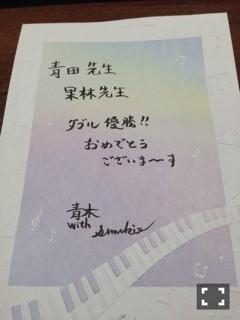 青田 先生
果林先生
ダブル 優勝!!
おめでとう
ございま〜す
青木
with